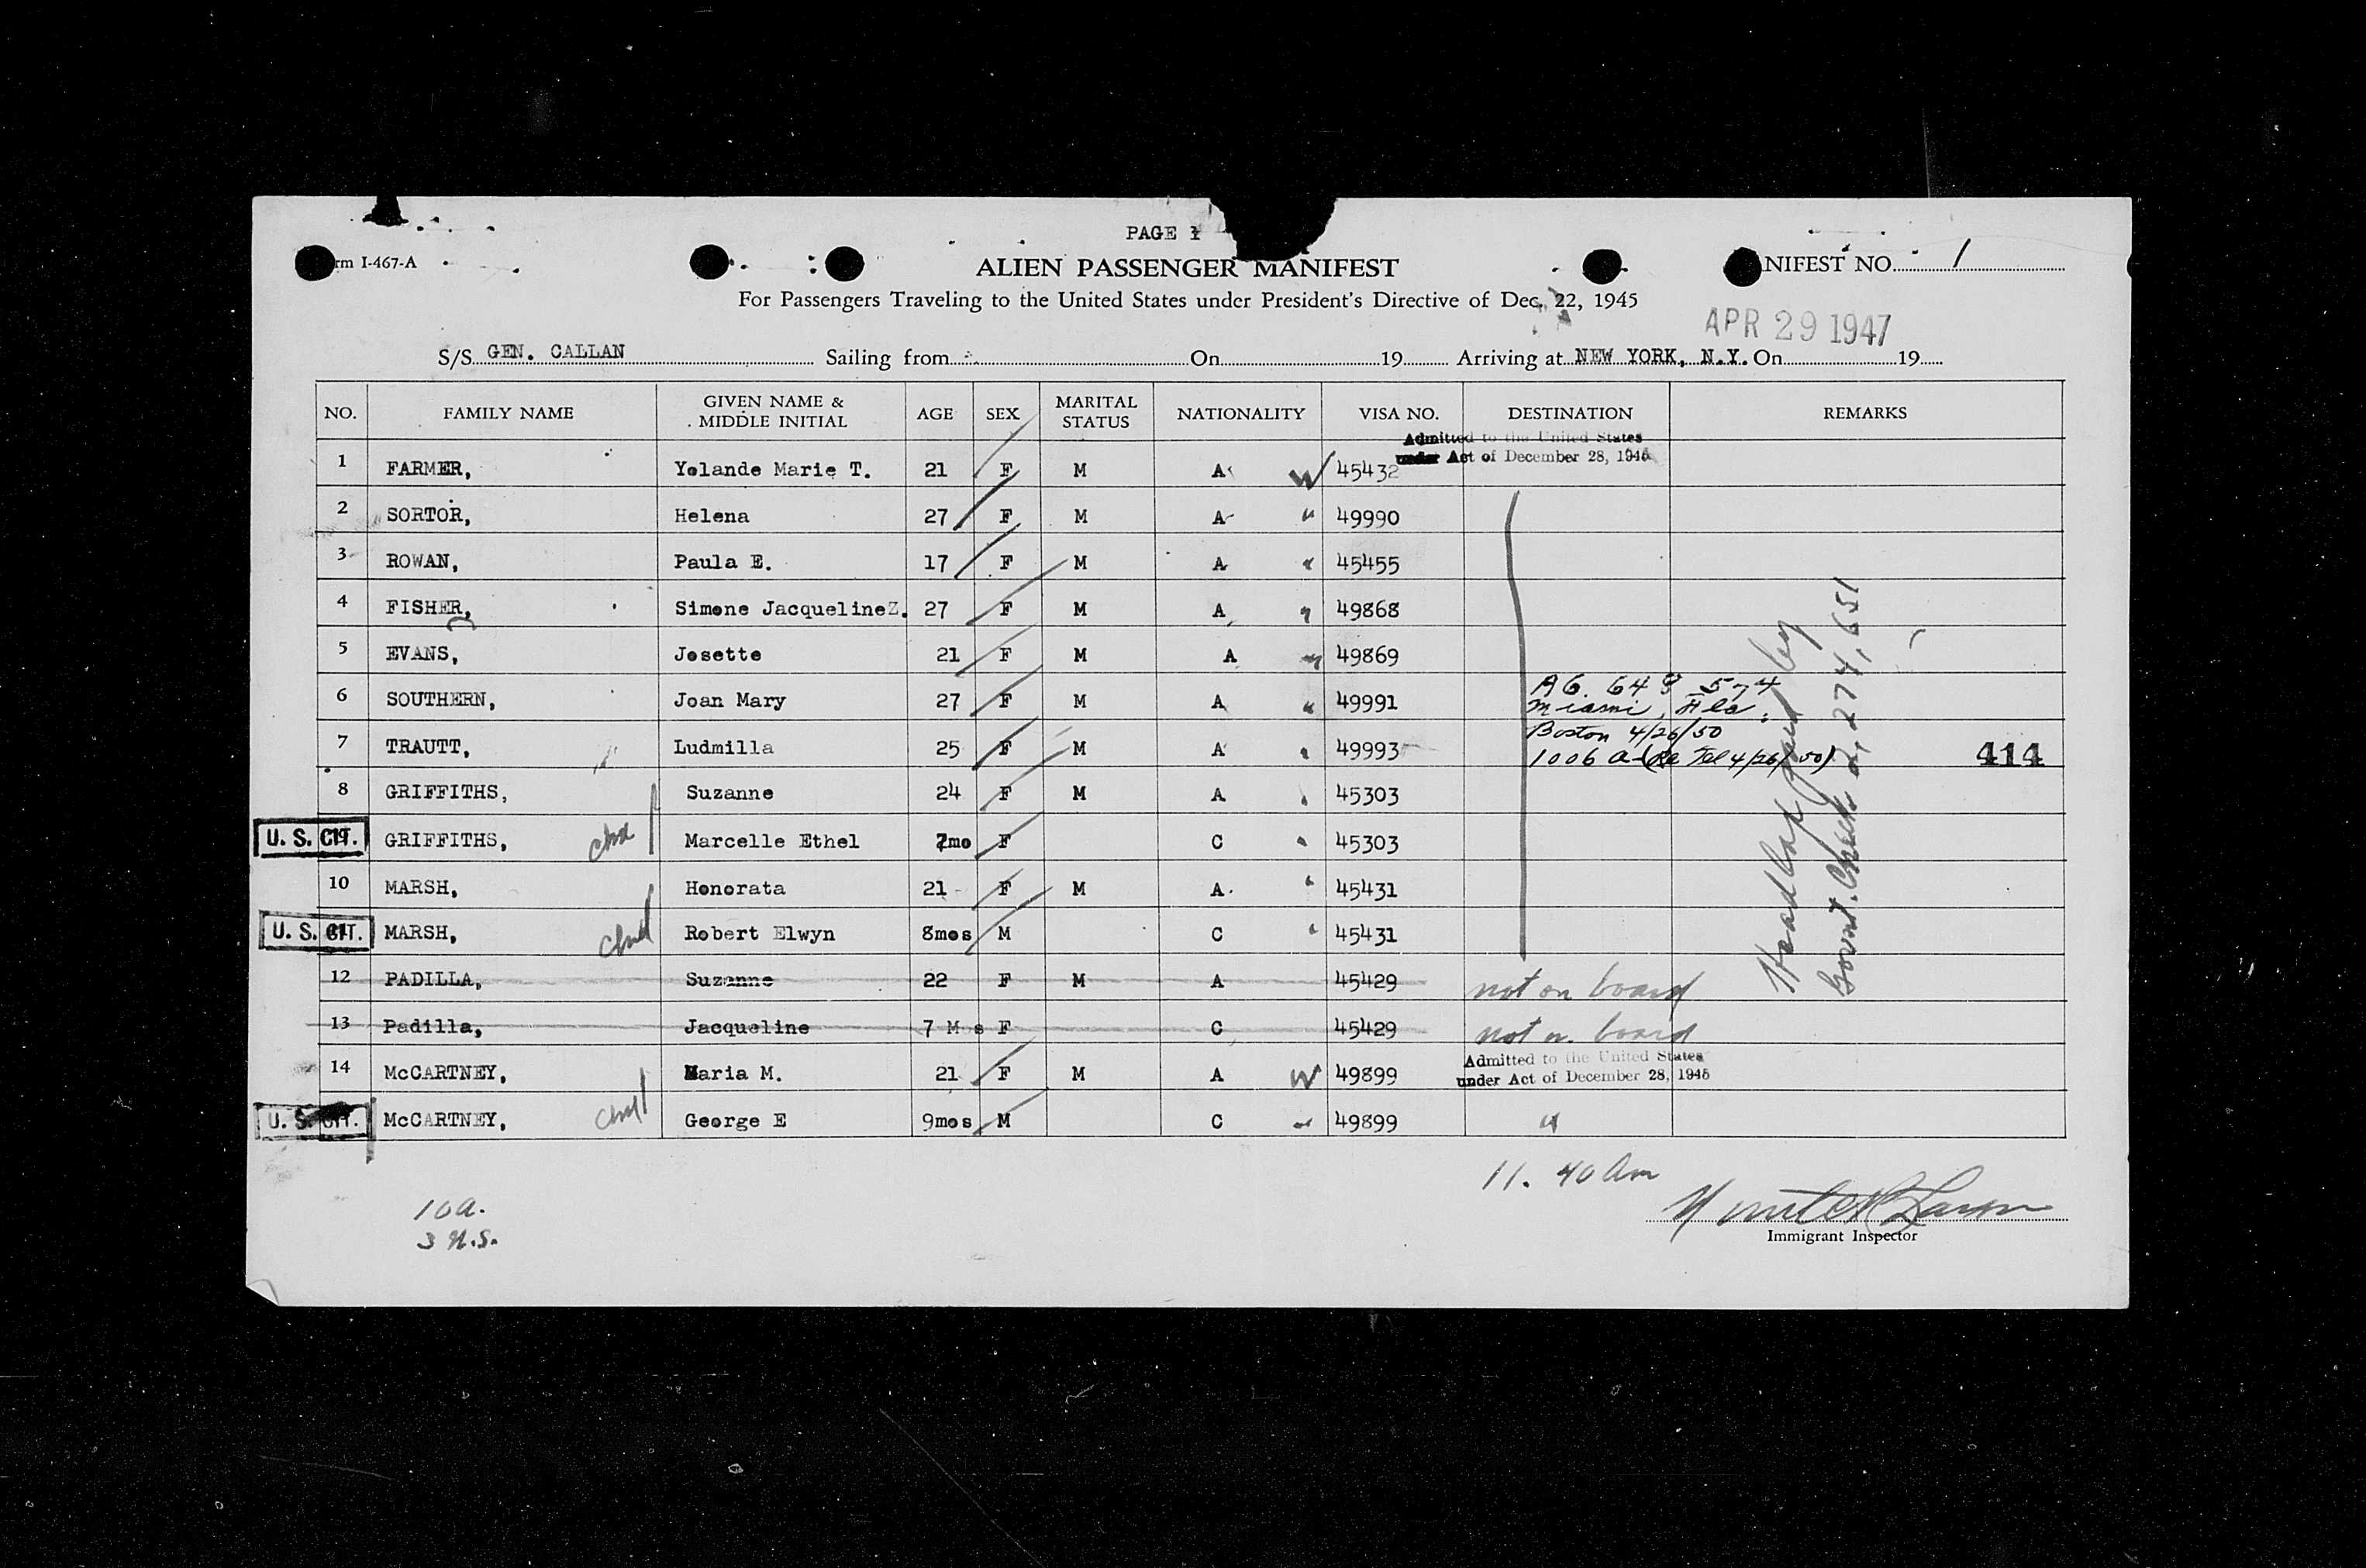 PAGE 1
rm I-467-A
ALIEN PASSENGER MANIFEST
NIFEST NO. 1
For Passengers Traveling to the United States under President's Directive of Dec. 22, 1945
APR 29 1947
S/S GEN. CALLAN Sailing from On 19 Arriving at NEW YORK, N.Y. On 19
NO. FAMILY NAME GIVEN NAME & MIDDLE INITIAL AGE SEX MARITAL STATUS NATIONALITY VISA NO. DESTINATION REMARKS
Admitted to the United States
under Act of December 28, 1945
1 FARMER, Yolande Marie T. 21 F M A W 45432
2 SORTOR, Helena 27 F M A " 49990
3 ROWAN, Paula E. 17 F M A " 45455
4 FISHER, Simone Jacqueline Z. 27 F M A " 49868
5 EVANS, Josette 21 F M A " 49869
6 SOUTHERN, Joan Mary 27 F M A " 49991
A6. 648 574
Miami, Fla.
7 TRAUTT, Ludmilla 25 F M A " 49993
Boston 4/26/50
1006 a-(Re Tel 4/26/50)
414
8 GRIFFITHS, Suzanne 24 F M A " 45303
U. S. CIT. GRIFFITHS, Marcelle Ethel 7mo F C " 45303
10 MARSH, Honorata 21 F M A " 45431
U. S. CIT. MARSH, Robert Elwyn 8mos M C " 45431
12 PADILLA, Suzanne 22 F M A 45429 not on board
13 Padilla, Jacqueline 7 Mos F C 45429 not on board
Admitted to the United States
under Act of December 28, 1945
14 McCARTNEY, Maria M. 21 F M A W 49899
U. S. CIT. McCARTNEY, George E 9mos M C " 49899 "
Head tax paid by
Govmt. Check 2,274,651
11.40 Am
10a.
3 U.S.
Immigrant Inspector